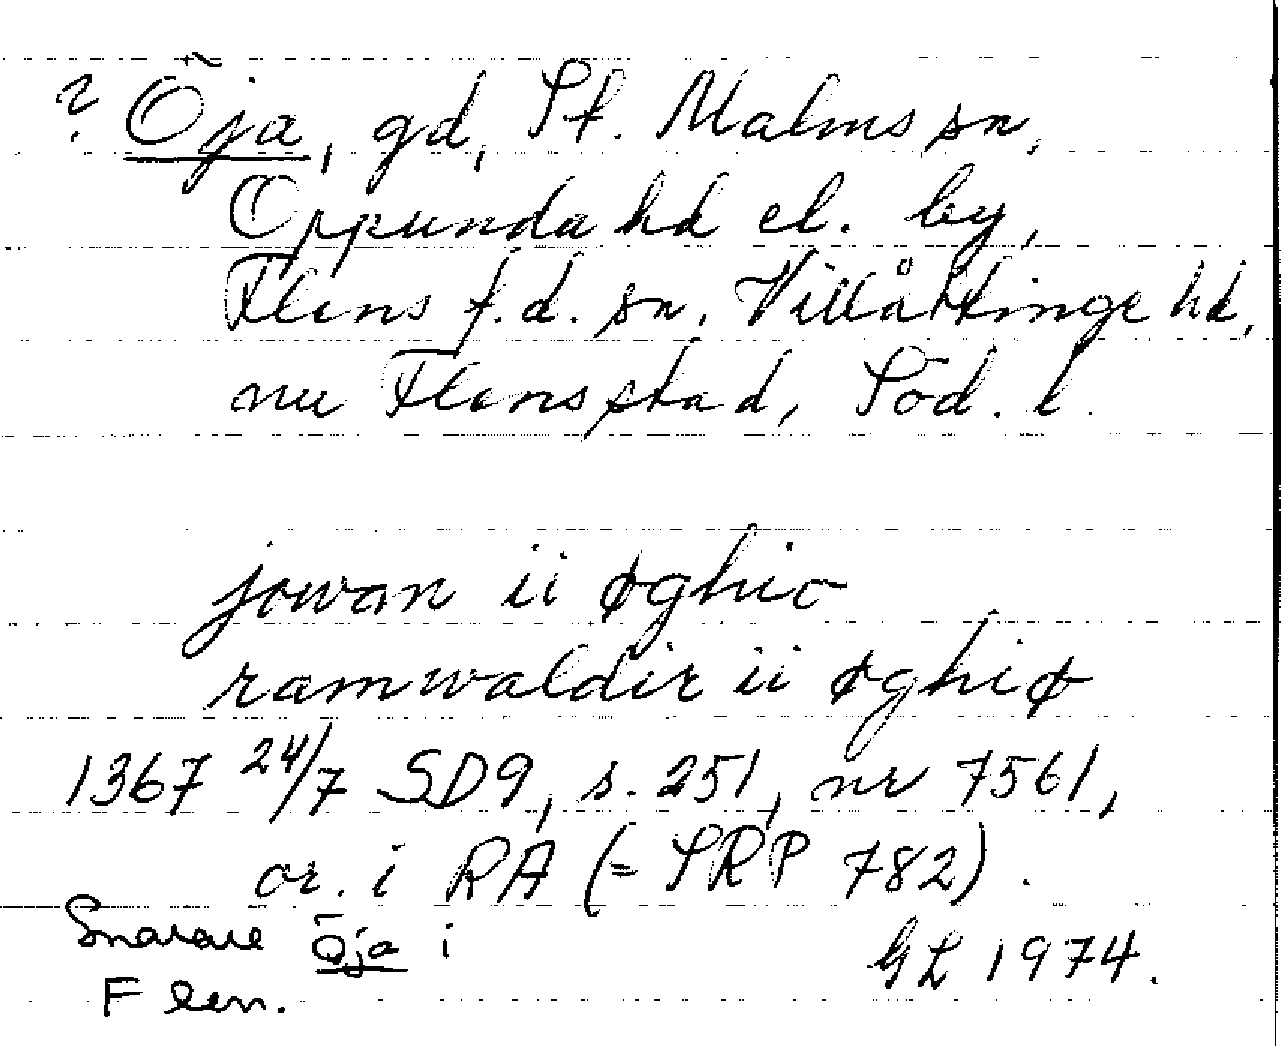 ? Öja, gd, St. Malms sn,
Oppunda hd el. by,
Flens f.d. sn, Villåttinge hd,
nu Flens stad, Söd. l.
jowan ii øghio
ramwaldir ii øghiø
1367 24/7 SD9, s. 251, nr 7561,
or. i RA (= SRP 782).
Snarare Öja i
Flen.
GL 1974.